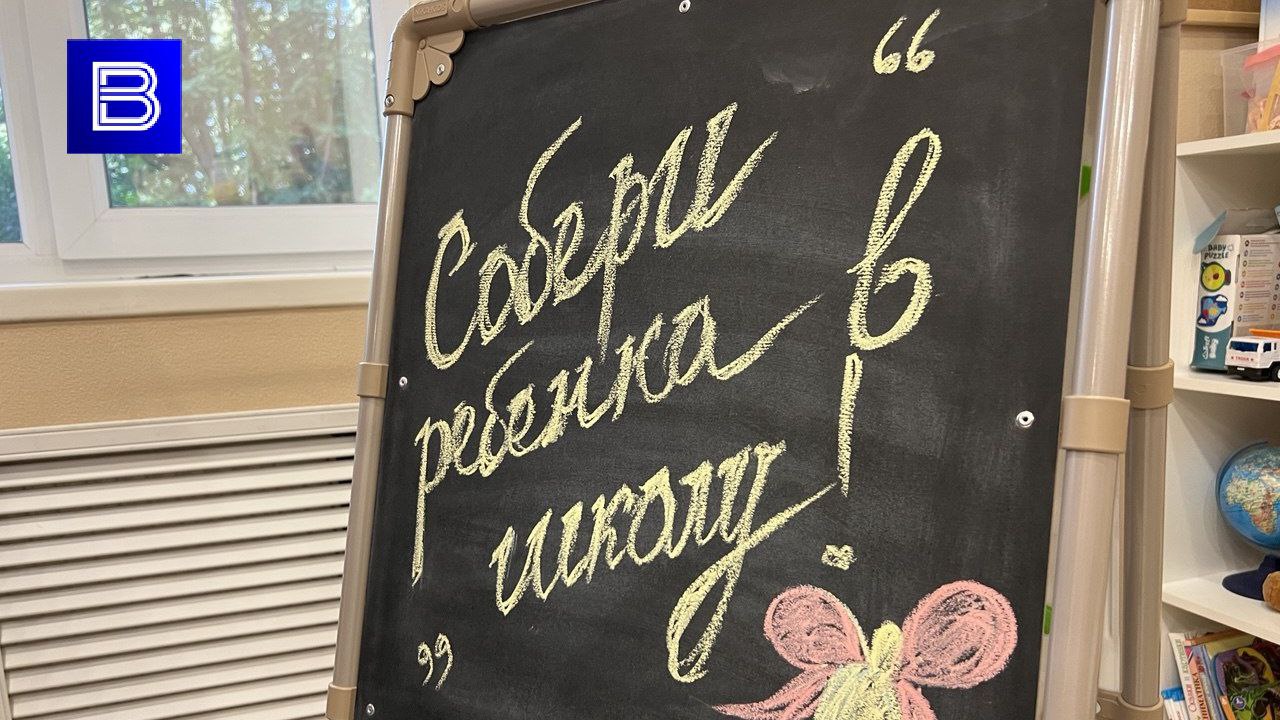 B
“
Собери
ребенка в
школу!
”
BABY
PUZZLE